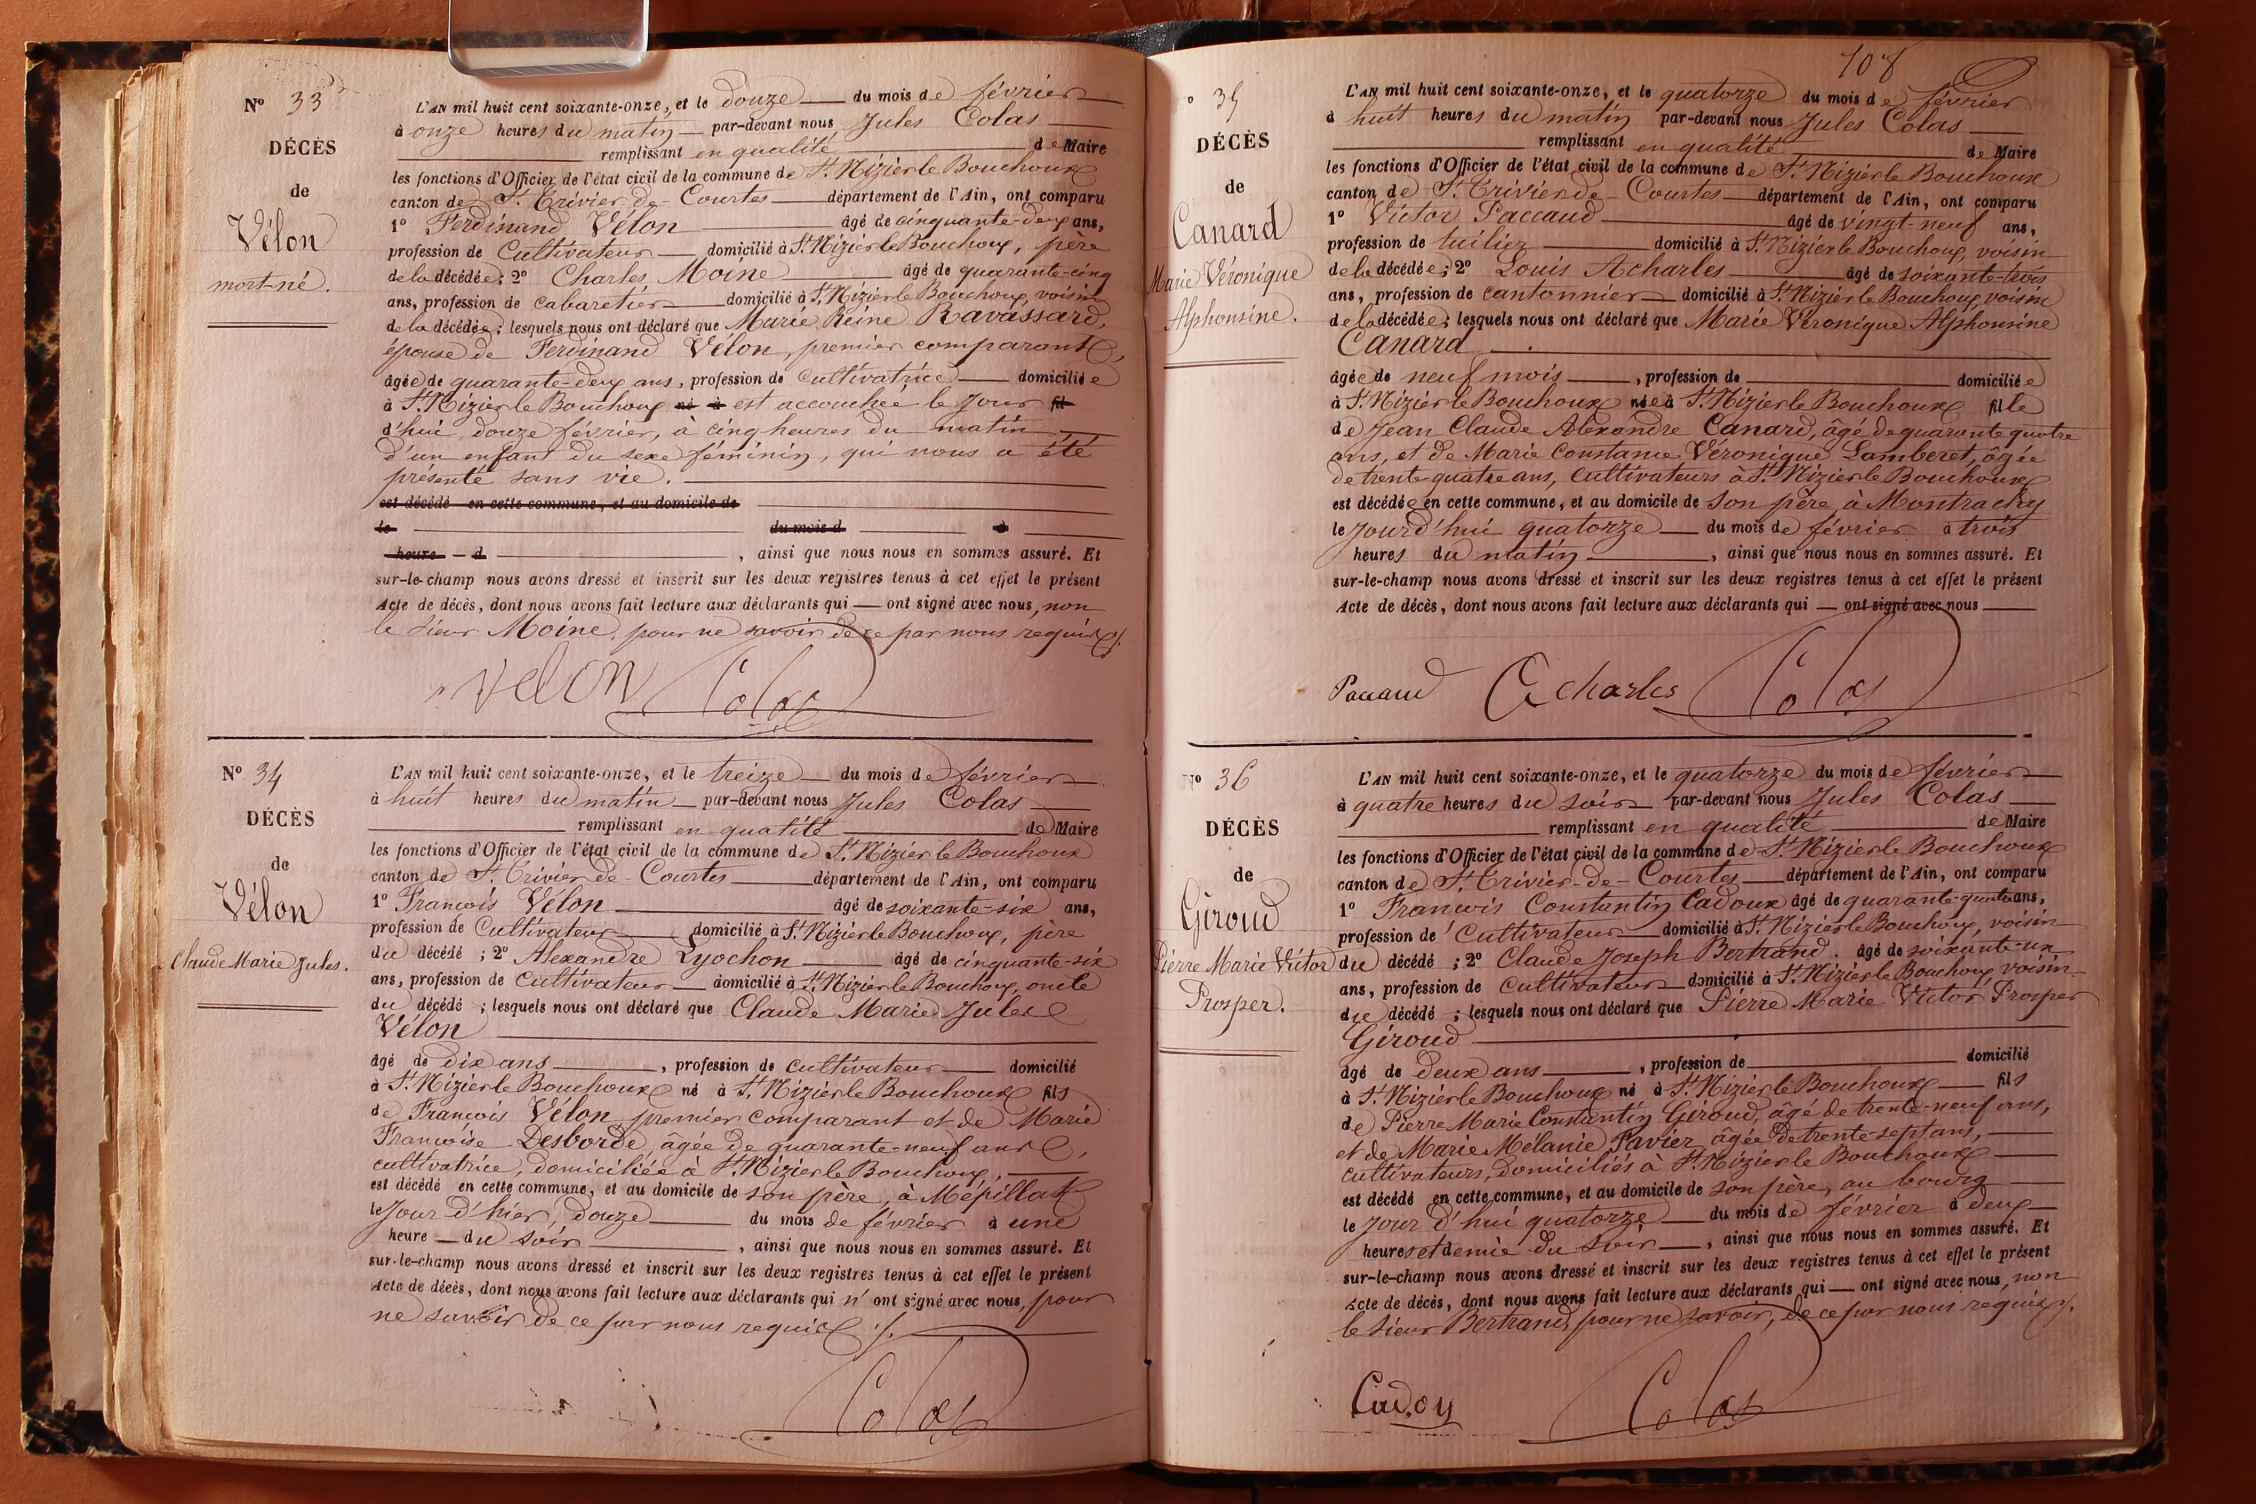 N° 33
DÉCÈS
de
Vélon
mort-né.
L'AN mil huit cent soixante-onze, et le douze du mois de février
à onze heures du matin par-devant nous Jules Colas
remplissant en qualité de Maire
les fonctions d'Officier de l'état civil de la commune de St. Nizier le Bouchoux
canton de St. Trivier-de-Courtes département de l'Ain, ont comparu
1° Ferdinand Vélon âgé de cinquante-deux ans,
profession de Cultivateur domicilié à St. Nizier le Bouchoux, père
de la décédée; 2° Charles Moine âgé de quarante-cinq
ans, profession de cabaretier domicilié à St. Nizier le Bouchoux, voisin
de la décédée; lesquels nous ont déclaré que Marie Reine Ravassard,
épouse de Ferdinand Vélon, premier comparant,
âgée de quarante-deux ans, profession de Cultivatrice domiciliée
à St. Nizier le Bouchoux né à est accouchée le jour fil
d'hui, douze février, à cinq heures du matin
d'un enfant du sexe féminin, qui nous a été
présenté sans vie.
est décédé en cette commune, et au domicile de
le du mois d à
heure d , ainsi que nous nous en sommes assuré. Et
sur-le-champ nous avons dressé et inscrit sur les deux registres tenus à cet effet le présent
Acte de décès, dont nous avons fait lecture aux déclarants qui ont signé avec nous, non
le sieur Moine, pour ne savoir de ce par nous requis
Velon Colas
N° 34
DÉCÈS
de
Vélon
Claude Marie Jules.
L'AN mil huit cent soixante-onze, et le treize du mois de février
à huit heures du matin par-devant nous Jules Colas
remplissant en qualité de Maire
les fonctions d'Officier de l'état civil de la commune de St. Nizier le Bouchoux
canton de St. Trivier-de-Courtes département de l'Ain, ont comparu
1° François Vélon âgé de soixante-six ans,
profession de Cultivateur domicilié à St. Nizier le Bouchoux, père
du décédé; 2° Alexandre Lyochon âgé de cinquante-six
ans, profession de Cultivateur domicilié à St. Nizier le Bouchoux, oncle
du décédé; lesquels nous ont déclaré que Claude Marie Jules
Vélon
âgé de dix ans, profession de cultivateur domicilié
à St. Nizier le Bouchoux né à St. Nizier le Bouchoux fils
de François Vélon premier comparant et de Marie
Françoise Desborde, âgée de quarante-neuf ans,
cultivatrice, domiciliée à St. Nizier le Bouchoux,
est décédé en cette commune, et au domicile de son père, à Mépillat
le jour d'hier, douze du mois de février à une
heure du soir, ainsi que nous nous en sommes assuré. Et
sur-le-champ nous avons dressé et inscrit sur les deux registres tenus à cet effet le présent
Acte de décès, dont nous avons fait lecture aux déclarants qui n'ont signé avec nous, pour
ne savoir de ce par nous requis ./.
Colas
108
° 35
DÉCÈS
de
Canard
Marie Véronique
Alphonsine.
L'AN mil huit cent soixante-onze, et le quatorze du mois de février
à huit heures du matin par-devant nous Jules Colas
remplissant en qualité de Maire
les fonctions d'Officier de l'état civil de la commune de St. Nizier le Bouchoux
canton de St. Trivier de-Courtes département de l'Ain, ont comparu
1° Victor Paccaud âgé de vingt-neuf ans,
profession de tuilier domicilié à St. Nizier le Bouchoux, voisin
de la décédée; 2° Louis Acharles âgé de soixante-trois
ans, profession de cantonnier domicilié à St. Nizier le Bouchoux, voisin
de la décédée; lesquels nous ont déclaré que Marie Véronique Alphonsine
Canard
âgée de neuf mois, profession de domiciliée
à St. Nizier le Bouchoux née à St. Nizier le Bouchoux fille
de Jean Claude Alexandre Canard, âgé de quarante quatre
ans, et de Marie Constance Véronique Lamberet, âgée
de trente-quatre ans, cultivateurs à St. Nizier le Bouchoux
est décédée en cette commune, et au domicile de son père à Montrachy
le jourd'hui quatorze du mois de février à trois
heures du matin, ainsi que nous nous en sommes assuré. Et
sur-le-champ nous avons dressé et inscrit sur les deux registres tenus à cet effet le présent
Acte de décès, dont nous avons fait lecture aux déclarants qui ont signé avec nous
Paccaud Acharles Colas
N° 36
DÉCÈS
de
Giroud
Pierre Marie Victor
Prosper.
L'AN mil huit cent soixante-onze, et le quatorze du mois de février
à quatre heures du soir par-devant nous Jules Colas
remplissant en qualité de Maire
les fonctions d'Officier de l'état civil de la commune de St. Nizier le Bouchoux
canton de St. Trivier-de-Courtes département de l'Ain, ont comparu
1° François Constantin Cadoux âgé de quarante-quatre ans,
profession de Cultivateur domicilié à St. Nizier le Bouchoux, voisin
du décédé; 2° Claude Joseph Bertrand. âgé de soixante-un
ans, profession de cultivateur domicilié à St. Nizier le Bouchoux, voisin
du décédé; lesquels nous ont déclaré que Pierre Marie Victor Prosper
Giroud
âgé de deux ans, profession de domicilié
à St. Nizier le Bouchoux né à St. Nizier le Bouchoux fils
de Pierre Marie Constantin Giroud, âgé de trente-neuf ans,
et de Marie Mélanie Pavier, âgée de trente-sept ans,
cultivateurs, domiciliés à St. Nizier le Bouchoux
est décédé en cette commune, et au domicile de son père, au bourg
le jour d'hui quatorze du mois de février à deux
heures et demie du soir, ainsi que nous nous en sommes assuré. Et
sur-le-champ nous avons dressé et inscrit sur les deux registres tenus à cet effet le présent
Acte de décès, dont nous avons fait lecture aux déclarants qui ont signé avec nous, non
le sieur Bertrand, pour ne savoir, de ce par nous requis ./.
Cadoux Colas